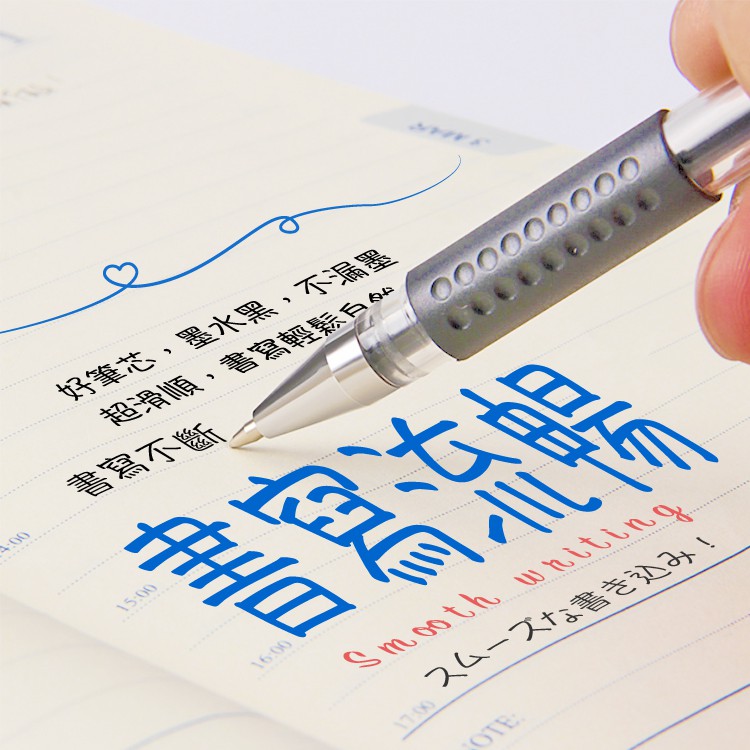 3 MAR
好筆芯，墨水黑，不漏墨
超滑順，書寫輕鬆自然
書寫不斷
書寫流暢
Smooth writing
スムーズな書き込み！
14:00
15:00
16:00
17:00
NOTE: